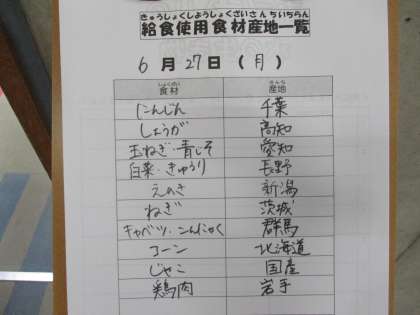 きゅうしょくしようしょくざいさんちいちらん
給食使用食材産地一覧
6月27日(月)
しょくざい さんち
食材 産地
にんじん 千葉
しょうが 高知
玉ねぎ・青じそ 愛知
白菜・きゅうり 長野
えのき 新潟
ねぎ 茨城
キャベツ・こんにゃく 群馬
コーン 北海道
じゃこ 国産
鶏肉 岩手